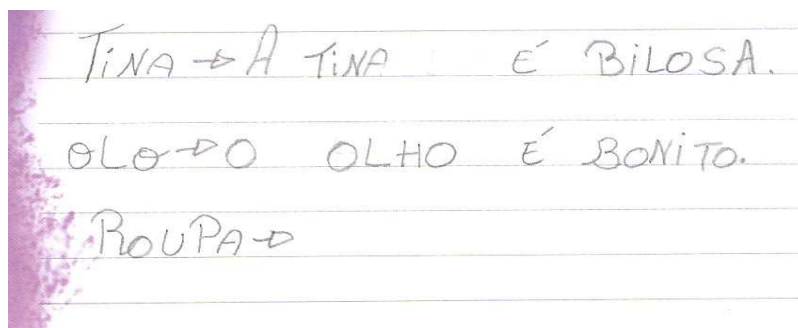 TINA → A TINA É BILOSA.
OLO → O OLHO É BONITO.
ROUPA →